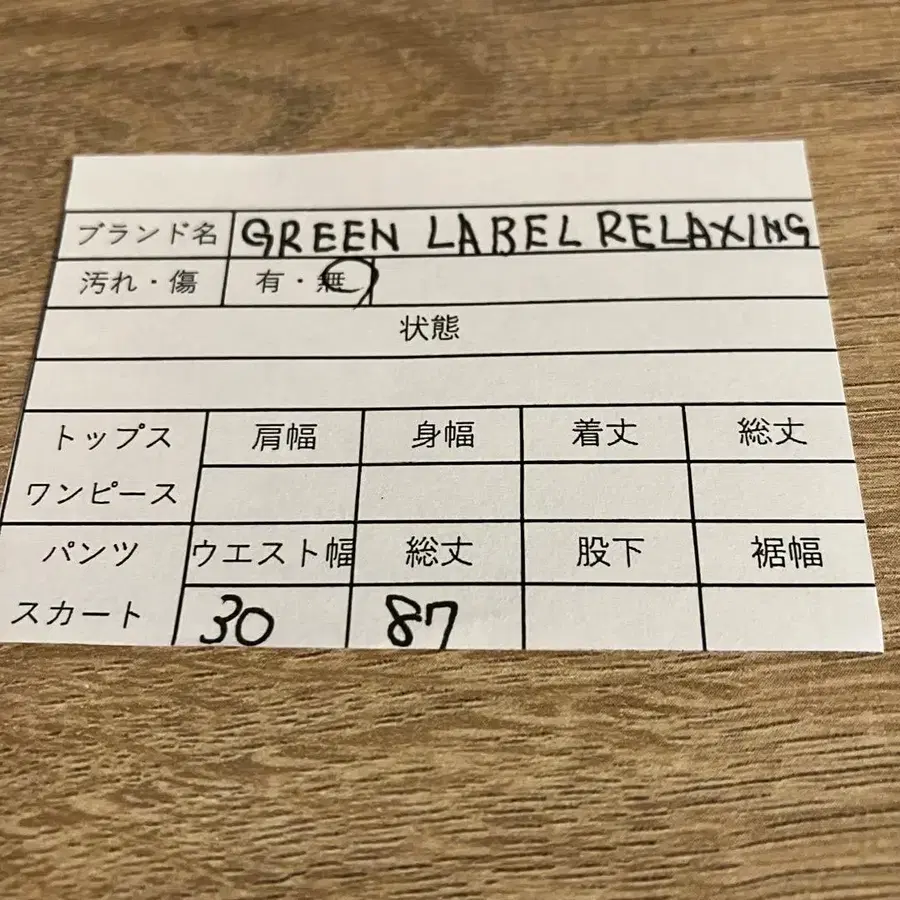 ブランド名 GREEN LABEL RELAXING
汚れ・傷 有・無
状態
トップス 肩幅 身幅 着丈 総丈
ワンピース
パンツ ウエスト幅 総丈 股下 裾幅
スカート 30 87